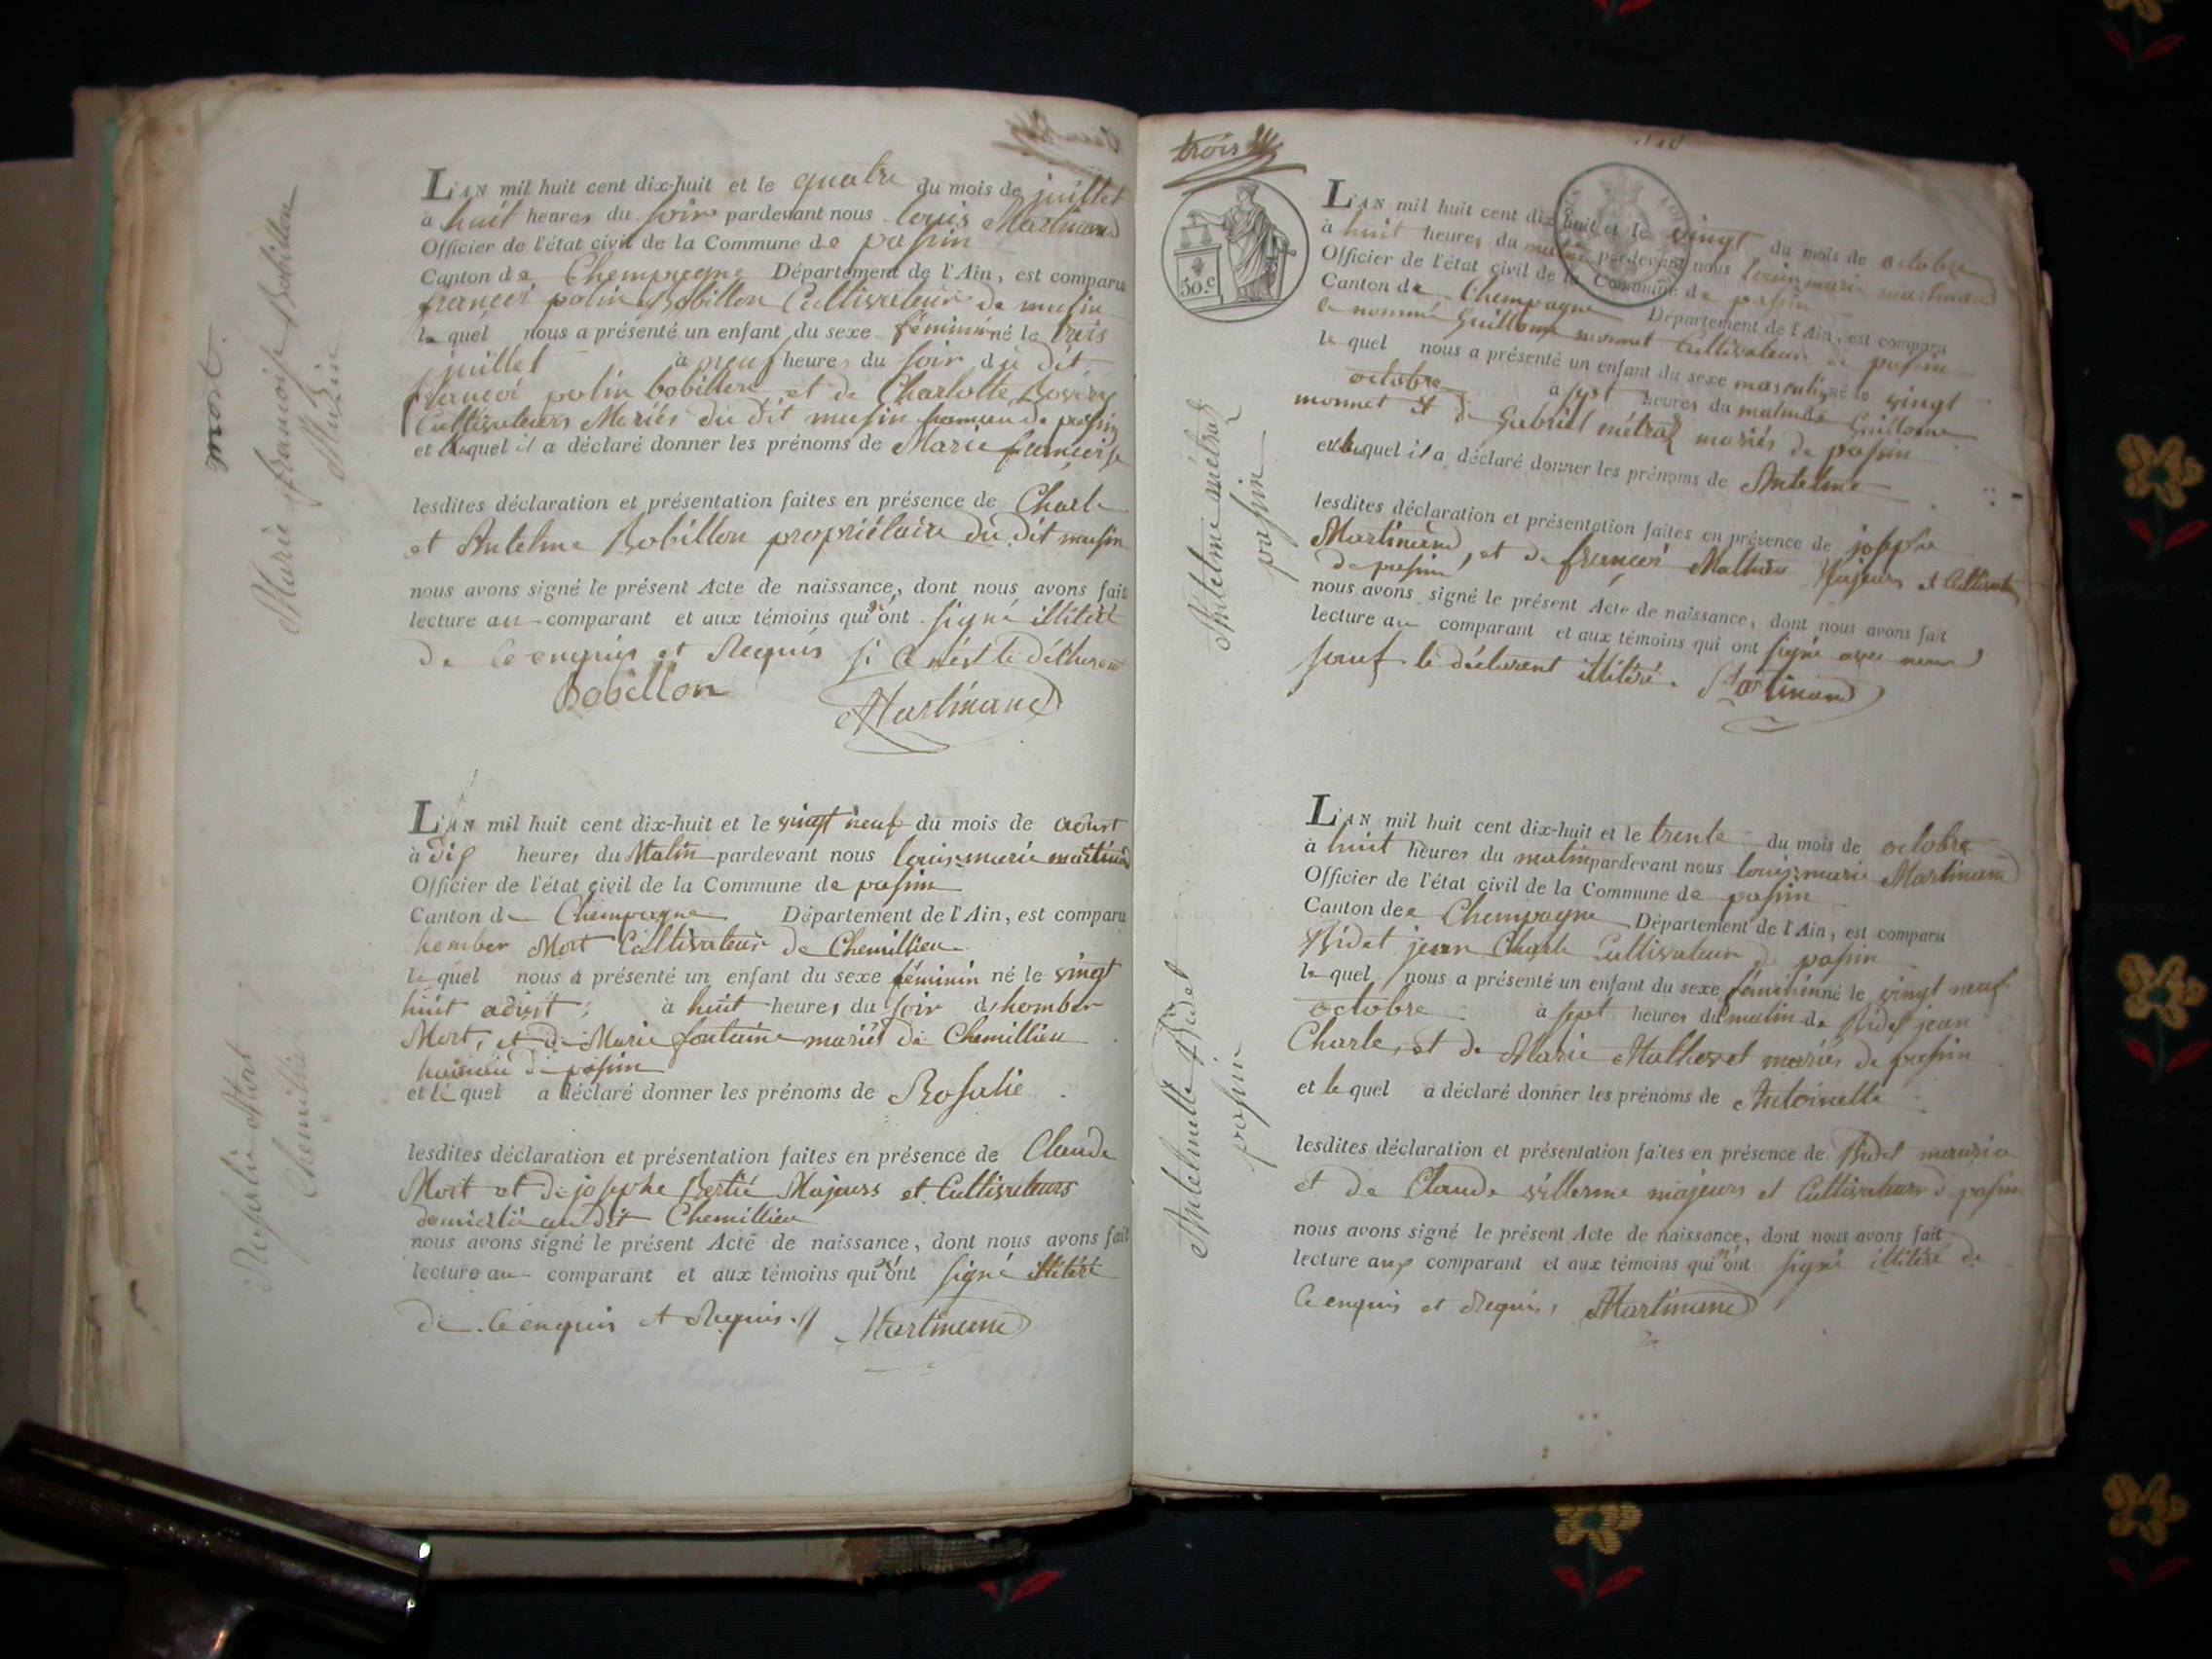 mort.
Marie françoise Bobillon
Musin
L'AN mil huit cent dix-huit et le quatre du mois de juillet
à huit heures du soir pardevant nous louis Martinand
Officier de l'état civil de la Commune de passin
Canton de Champagne Département de l'Ain, est comparu
françoi polin Bobillon Cultivateur de musin
le quel nous a présenté un enfant du sexe féminin né le trois
juillet à neuf heures du soir du dit
françoi polin bobillon et de Charlotte
Cultivateurs Mariés du dit musin hameau de passin
et lequel il a déclaré donner les prénoms de Marie françoise
lesdites déclaration et présentation faites en présence de Charle
et Antelme Bobillon propriétaire du dit musin
nous avons signé le présent Acte de naissance, dont nous avons fait
lecture au comparant et aux témoins qui n'ont signé illitéré
de ce enquis et Requis si ce n'est le déclarant
Bobillon Martinand
Rosalie Mort
Chemillieu
L'AN mil huit cent dix-huit et le vingt neuf du mois de adust
à dix heures du Matin pardevant nous louis marie martinand
Officier de l'état civil de la Commune de passin
Canton de Champagne Département de l'Ain, est comparu
hember Mort Cultivateur de Chemillieu
le quel nous a présenté un enfant du sexe féminin né le vingt
huit adust à huit heures du soir d hember
Mort, et de Marie fontaine mariés de Chemillieu
hameau de passin
et le quel a déclaré donner les prénoms de Rosalie
lesdites déclaration et présentation faites en présence de Claude
Mort et de josephe Bertié Majeurs et Cultivateurs
domicilié au dit Chemillieu
nous avons signé le présent Acte de naissance, dont nous avons fait
lecture au comparant et aux témoins qui n'ont signé illitéré
de ce enquis et Requis. Martinand
trois
30.c
Antelme métraz
passin
L'AN mil huit cent dix-huit et le vingt du mois de octobre
à huit heures du matin pardevant nous louis marie martinand
Officier de l'état civil de la Commune de passin
Canton de Champagne Département de l'Ain, est comparu
le nommé Guillome monnet Cultivateur de passin
le quel nous a présenté un enfant du sexe masculin né le vingt
octobre à sept heures du matin de Guillome
monnet et de Gabriel métraz mariés de passin
et lequel il a déclaré donner les prénoms de Antelme
lesdites déclaration et présentation faites en présence de josephe
Martinand, et de françoi Mathieu Majeurs et Cultivateurs
de passin
nous avons signé le présent Acte de naissance, dont nous avons fait
lecture au comparant et aux témoins qui ont signé avec nous
sauf le déclarant illitéré. Martinand
Antelmette Bidet
passin
L'AN mil huit cent dix-huit et le trente du mois de octobre
à huit heures du matin pardevant nous louis marie Martinand
Officier de l'état civil de la Commune de passin
Canton de Champagne Département de l'Ain, est comparu
Bidet jean Charle Cultivateur de passin
le quel nous a présenté un enfant du sexe féminin né le vingt neuf
octobre à sept heures du matin de Bidet jean
Charle, et de Marie mariés de passin
et le quel a déclaré donner les prénoms de Antoinette
lesdites déclaration et présentation faites en présence de Bidet maurise
et de Claude villerme majeurs et Cultivateurs d passin
nous avons signé le présent Acte de naissance, dont nous avons fait
lecture aux comparant et aux témoins qui n'ont signé illitéré de
ce enquis et Requis, Martinand